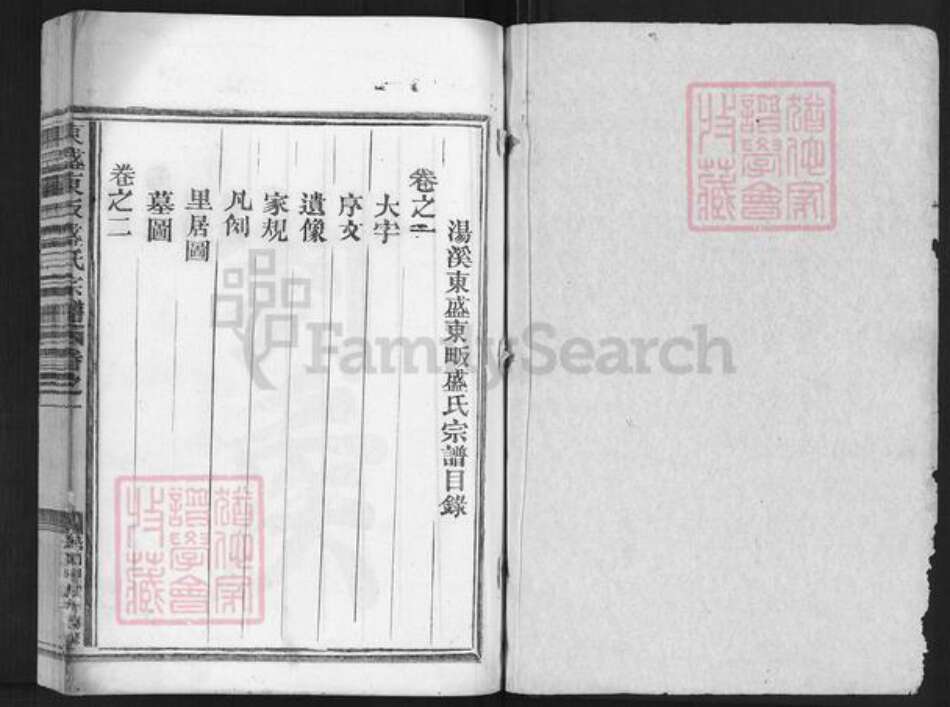 湯溪東盛東畈盛氏宗譜目錄
卷之一
大宇
序文
遺像
家規
凡例
里居圖
墓圖
卷之二
東盛東畈盛氏宗譜
譜學會
收藏
譜學會
收藏
FamilySearch